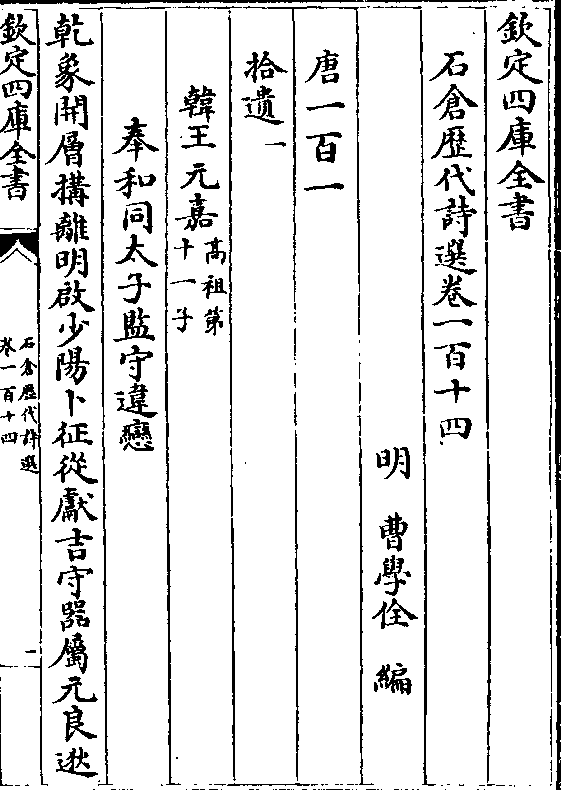 欽定四庫全書
石倉歷代詩選卷一百十四
明　曹學佺　編
唐一百一
拾遺一
韓王元嘉高祖第十一子
奉和同太子監守違戀
乾象開層搆離明啟少陽卜征從獻吉守器屬元良逖
欽定四庫全書
石倉歷代詩選
卷一百十四
一